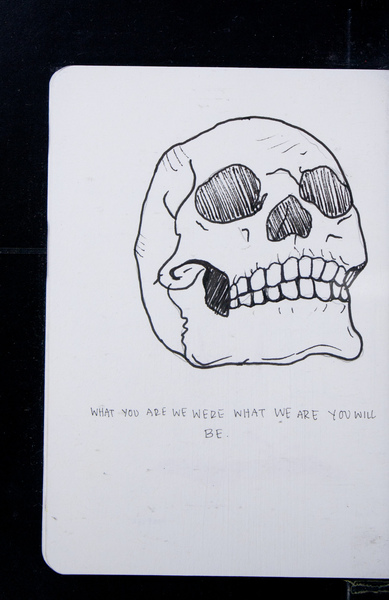 WHAT YOU ARE WE WERE WHAT WE ARE YOU WILL
BE.